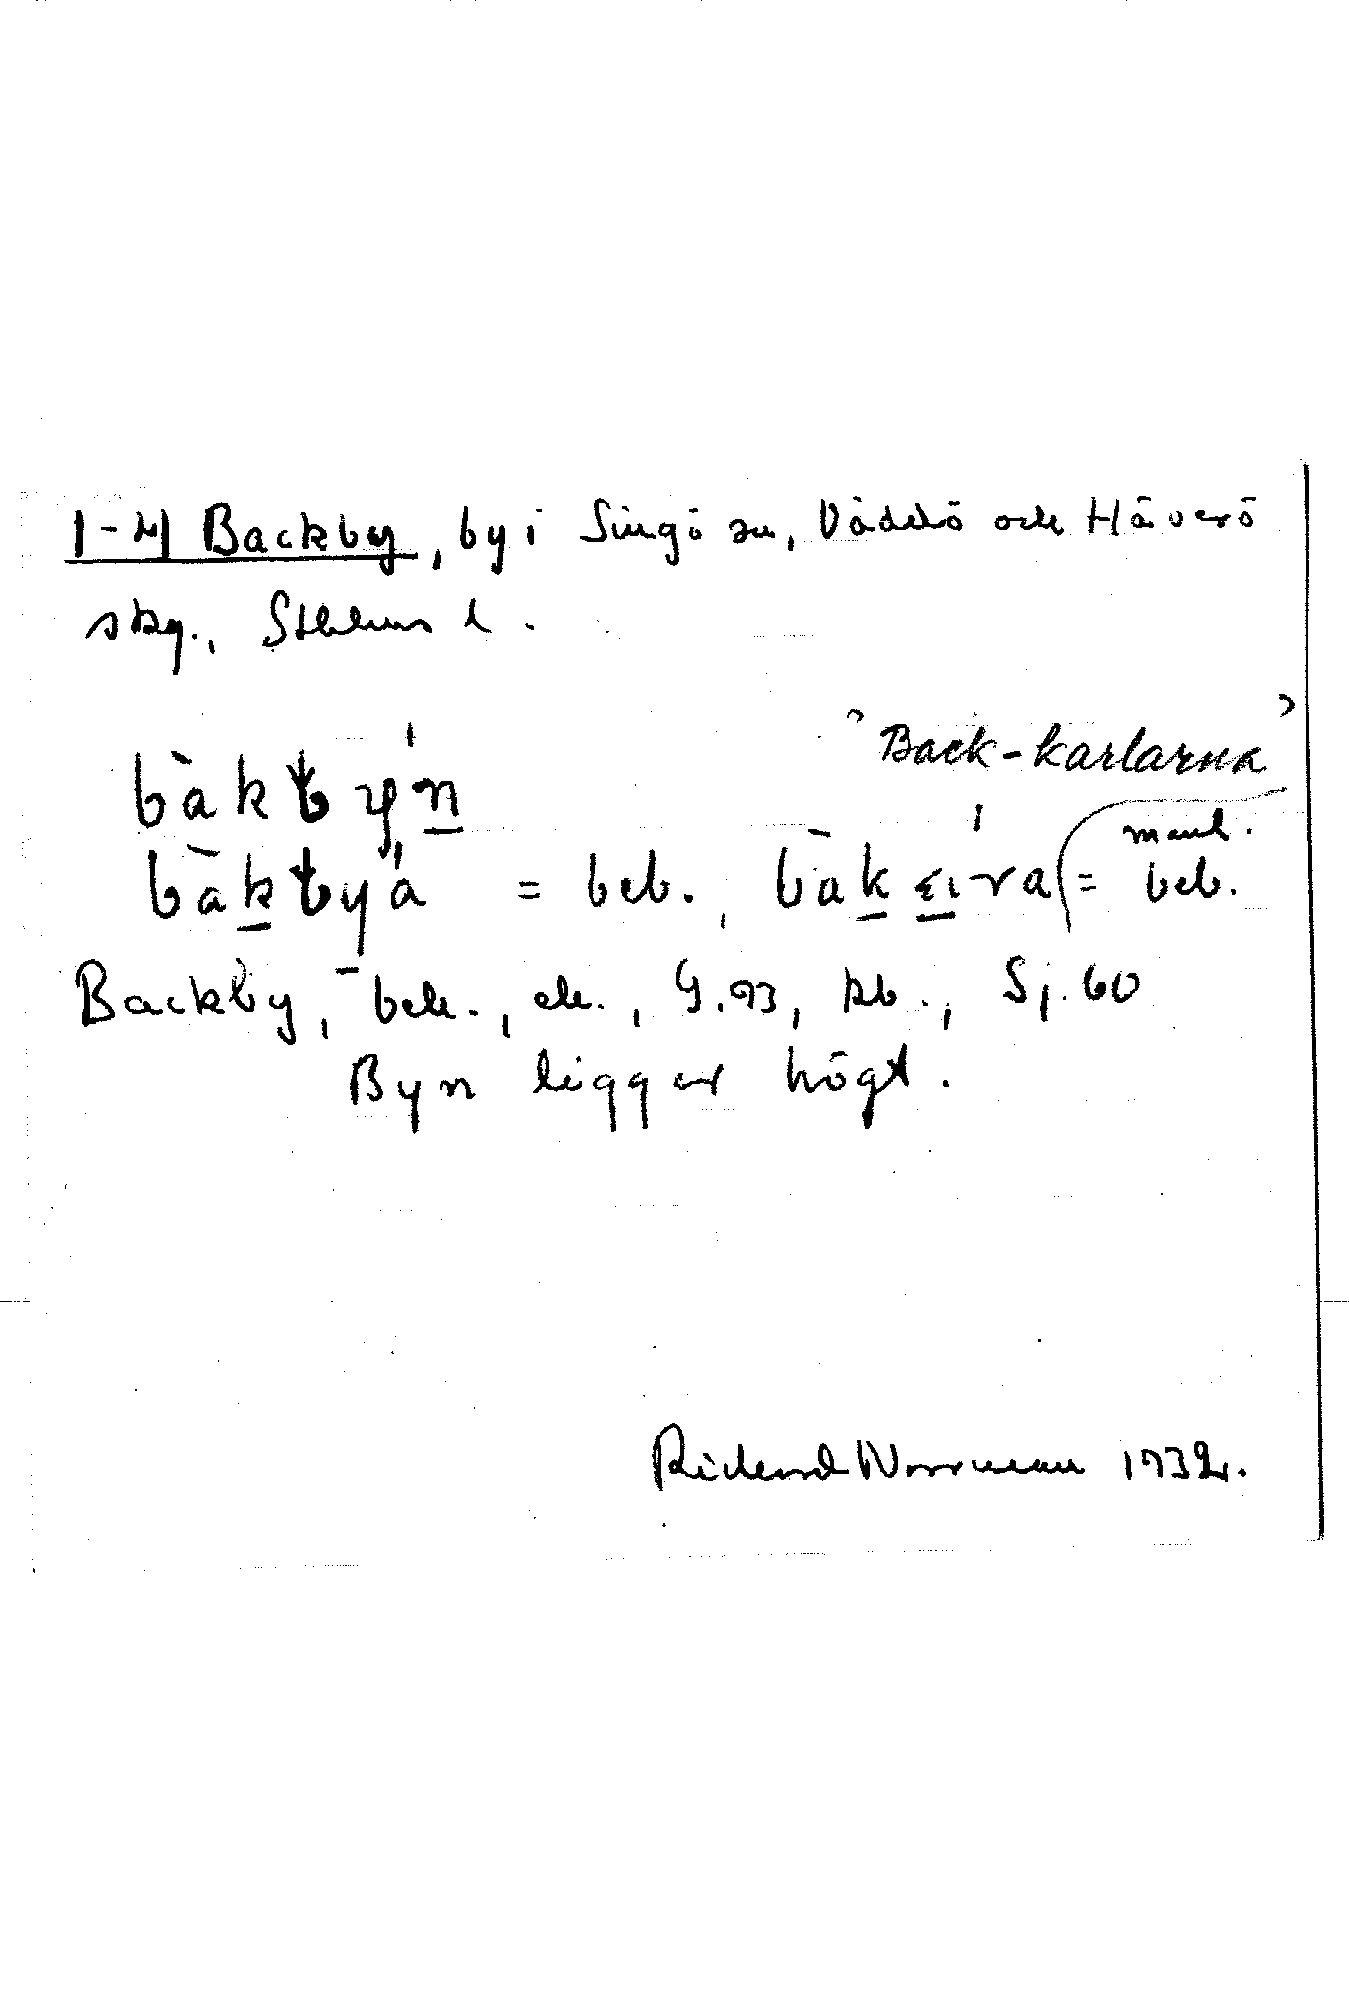 1-4 Backby, by i Singö sn, Väddö och Häverö
skg., Sthlms l.
"Back-karlarna"
bàkbyn
bàkbya = beb., bàk ra = manl. beb.
Backby, - bek., ek., G.93, kb., Sj. 60
Byn ligger högt.
Rickard Norrman 1932.